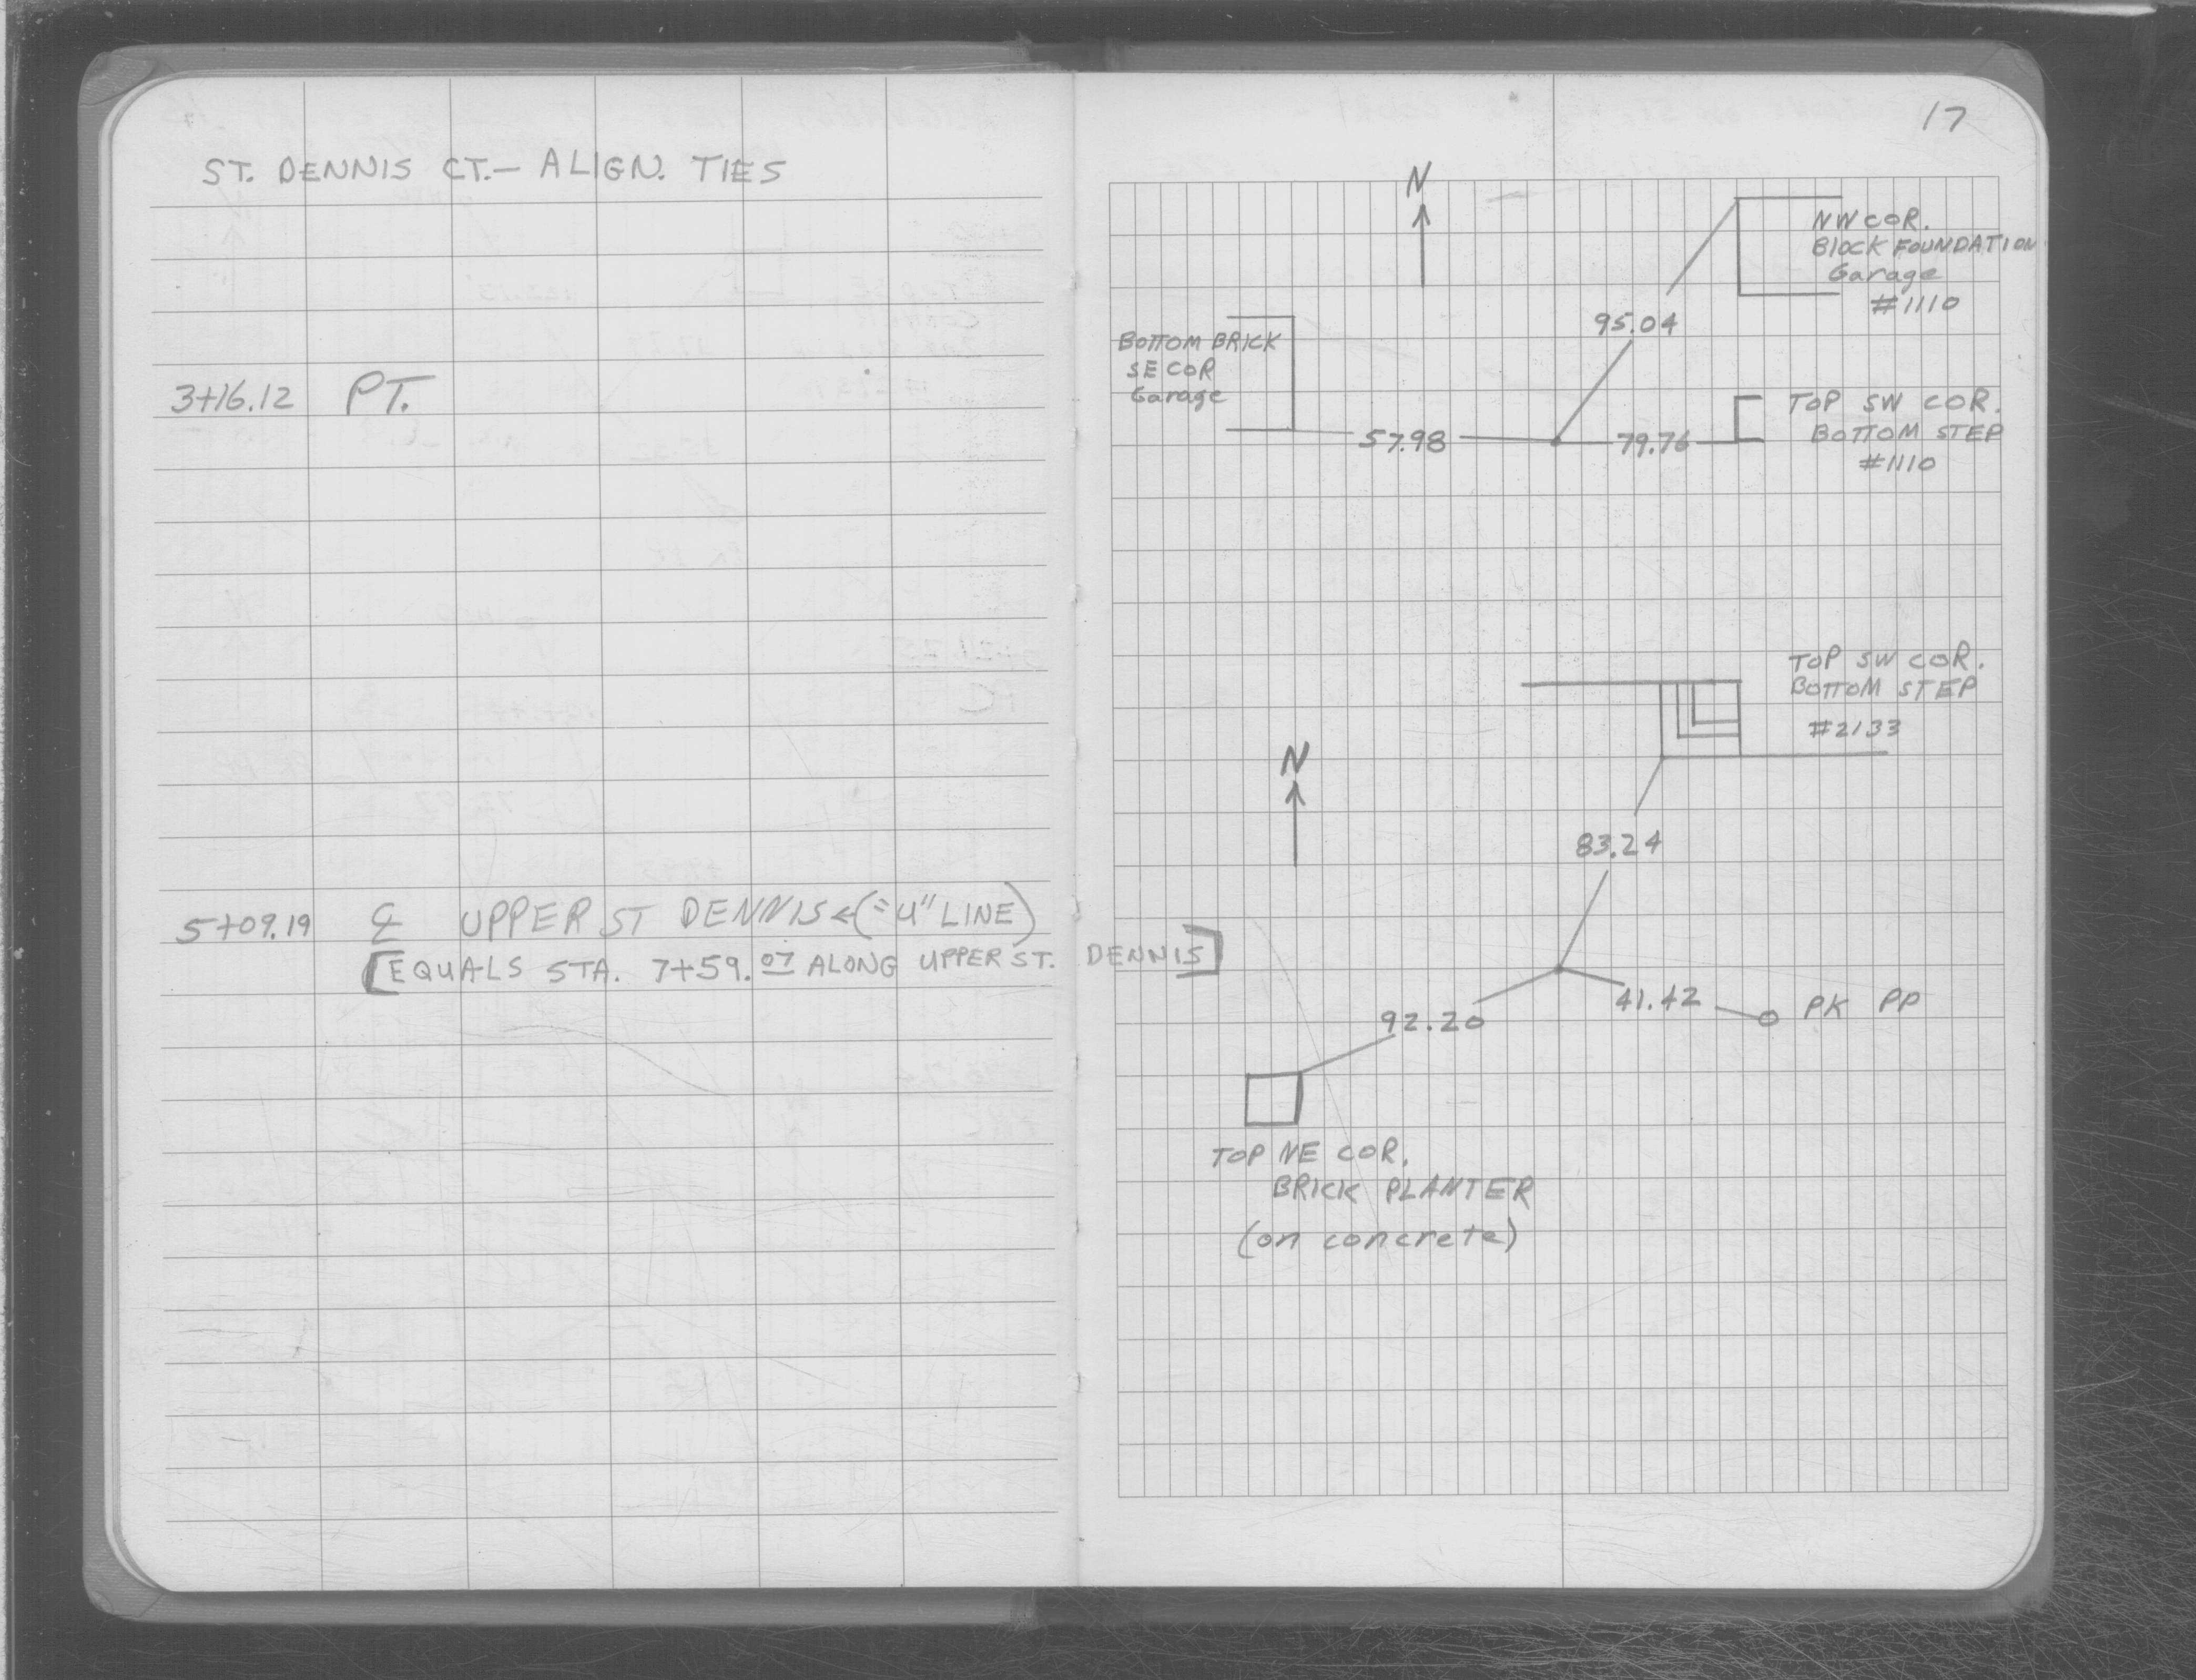 17
ST. DENNIS CT.— ALIGN. TIES
3+16.12 PT.
5+09.19 ℄ UPPER ST DENNIS ←(="U" LINE)
[EQUALS STA. 7+59.07 ALONG UPPER ST. DENNIS]
N
NW COR.
BLOCK FOUNDATION
Garage
#1110
95.04
BOTTOM BRICK
SE COR
Garage
57.98
79.76
TOP SW COR.
BOTTOM STEP
#1110
TOP SW COR.
BOTTOM STEP
#2133
N
83.24
92.20
41.42
PK PP
TOP NE COR.
BRICK PLANTER
(on concrete)